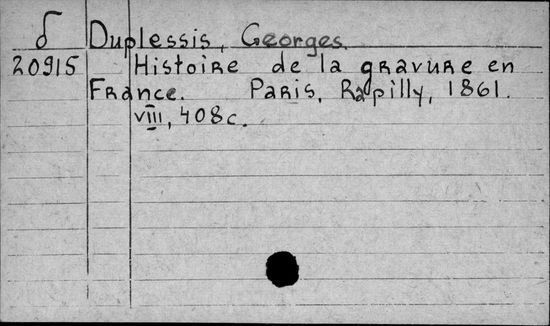 δ Duplessis, Georges.
20915 Histoire de la gravure en
France. Paris, Rapilly, 1861.
VIII, 408 c.